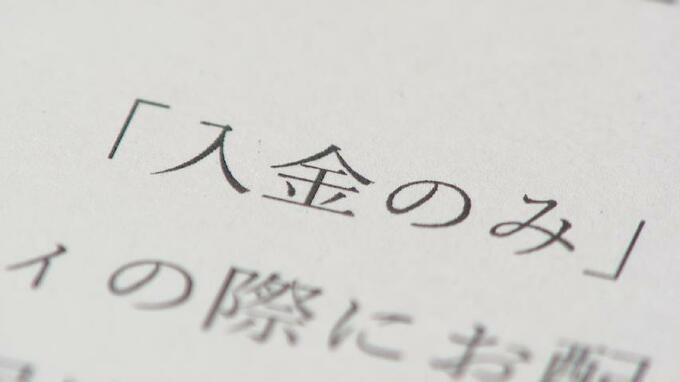 「入金のみ」
ィの際にお配